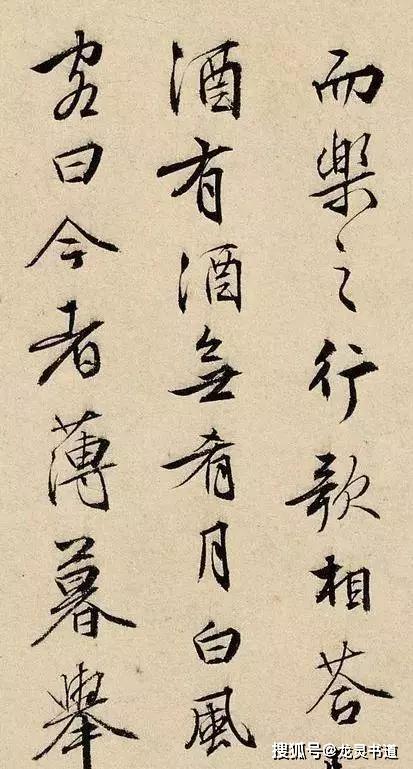 而樂之行歌相荅
酒有酒無肴月白風
客曰今者薄暮舉
搜狐号@龙灵书道